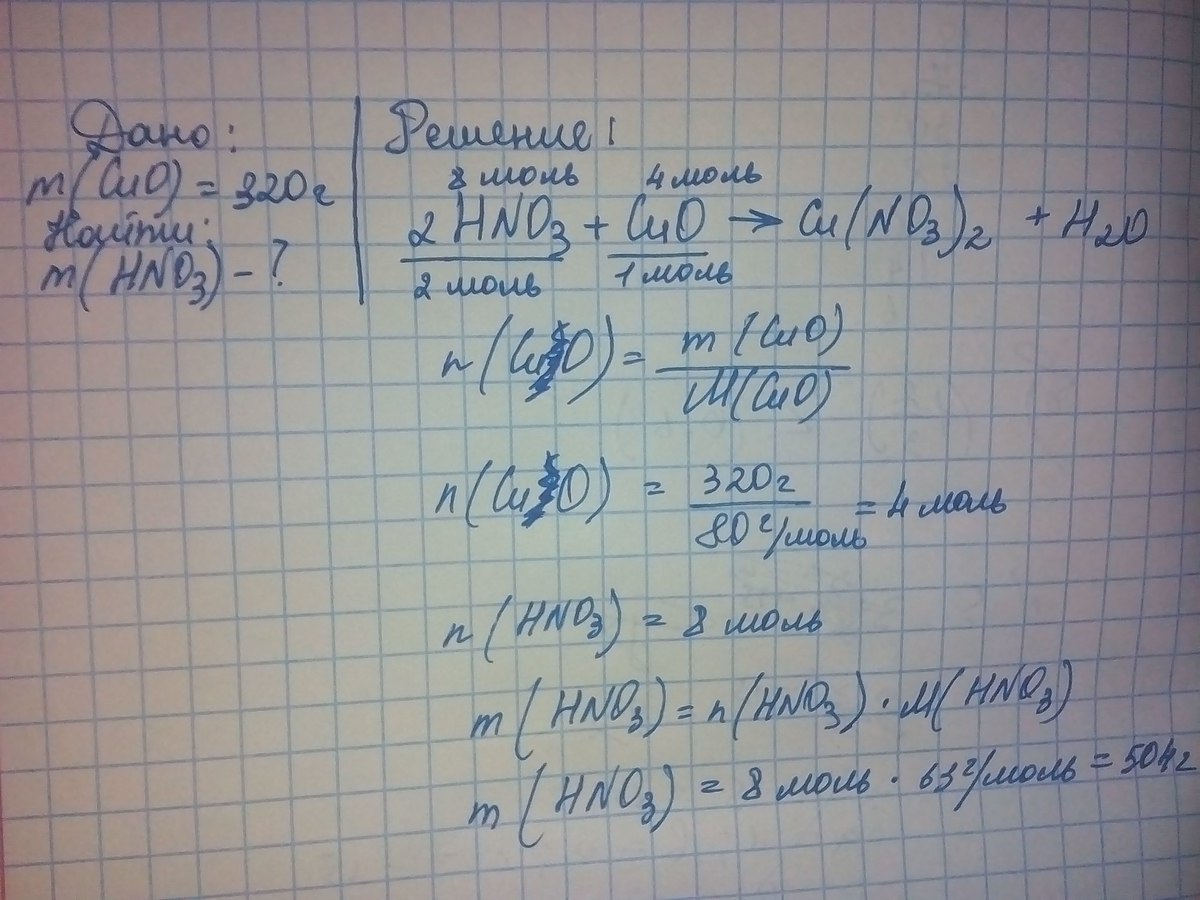 Дано:
m(CuO) = 320г
Найти:
m(HNO3) - ?
Решение:
8 моль 4 моль
2 HNO3 + CuO → Cu(NO3)2 + H2O
2 моль 1 моль
n(CuO) = m(CuO) / M(CuO)
n(CuO) = 320г / 80 г/моль = 4 моль
n(HNO3) = 8 моль
m(HNO3) = n(HNO3) · M(HNO3)
m(HNO3) = 8 моль · 63 г/моль = 504г